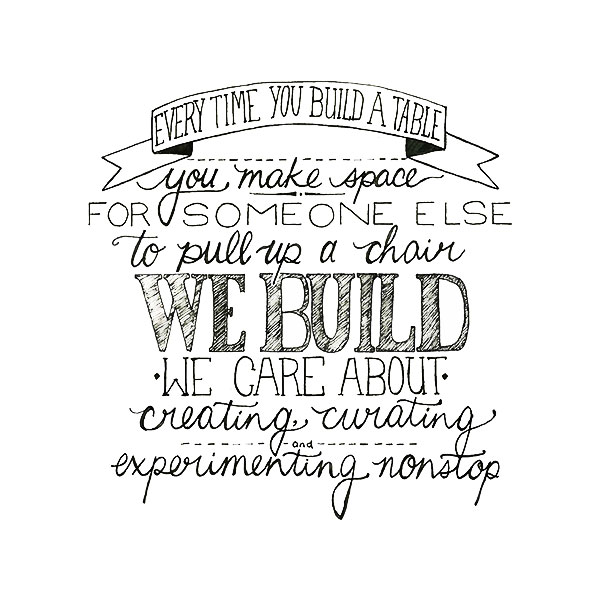 EVERY TIME YOU BUILD A TABLE
you make space
FOR SOMEONE ELSE
to pull up a chair
WE BUILD
·WE CARE ABOUT·
creating, curating
and
experimenting nonstop